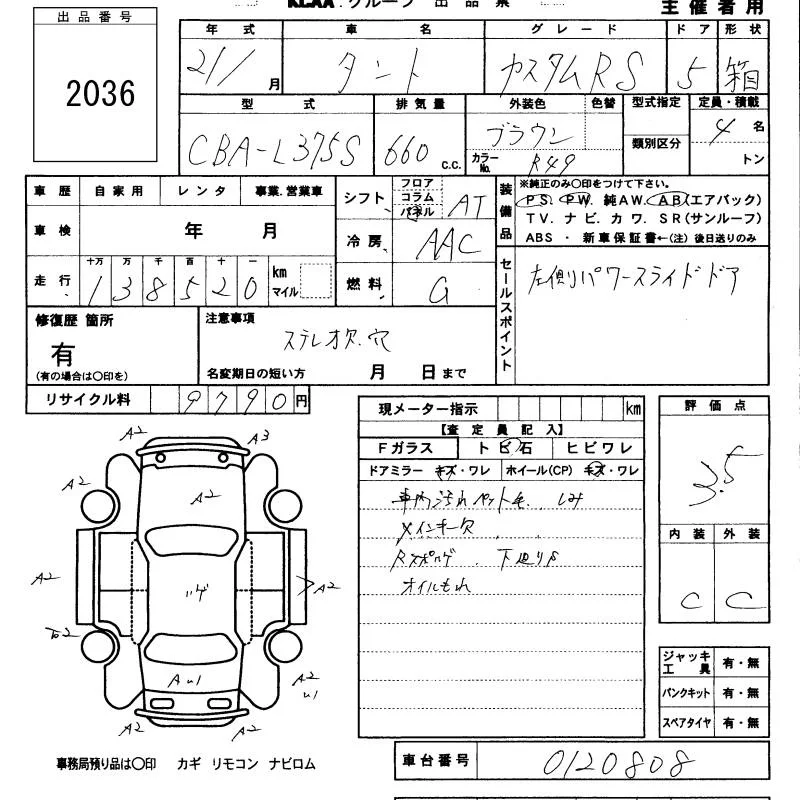 KCAA.グループ 出品票
主催者用
出品番号
2036
年式 車名 グレード ドア 形状
21/ 月 タント カスタムRS 5 箱
型式 排気量 外装色 色替 型式指定 定員・積載
CBA-L375S 660 c.c. ブラウン 類別区分 4 名
カラーNo. R49 トン
車歴 自家用 レンタ 事業.営業車
シフト フロア コラム パネル AT
装備品 ※純正のみ○印をつけて下さい。
PS. PW. 純AW. AB(エアバック)
TV. ナビ. カワ. SR(サンルーフ)
ABS ・ 新車保証書←(注) 後日送りのみ
車検 年 月
冷房 AAC
走行 十万 万 千 百 十 一 km マイル
138520
燃料 G
セールスポイント 左側パワースライドドア
修復歴 箇所
有
(有の場合は○印を)
注意事項
ステレオ欠.穴
名変期日の短い方 月 日まで
リサイクル料 9790円
現メーター指示 km
【査定員記入】
Fガラス トビ石 ヒビワレ
ドアミラー キズ・ワレ ホイール(CP) キズ・ワレ
車内汚れ ペット毛. しみ
メインキー欠
下廻りS
オイルもれ
評価点
3.5
内装 外装
C C
A2 A3
A2 A2
A2 ハゲ A2
A2
AU1 U1
A2 A2
ジャッキ工具 有・無
パンクキット 有・無
スペアタイヤ 有・無
事務局預り品は○印 カギ リモコン ナビロム
車台番号 0120808